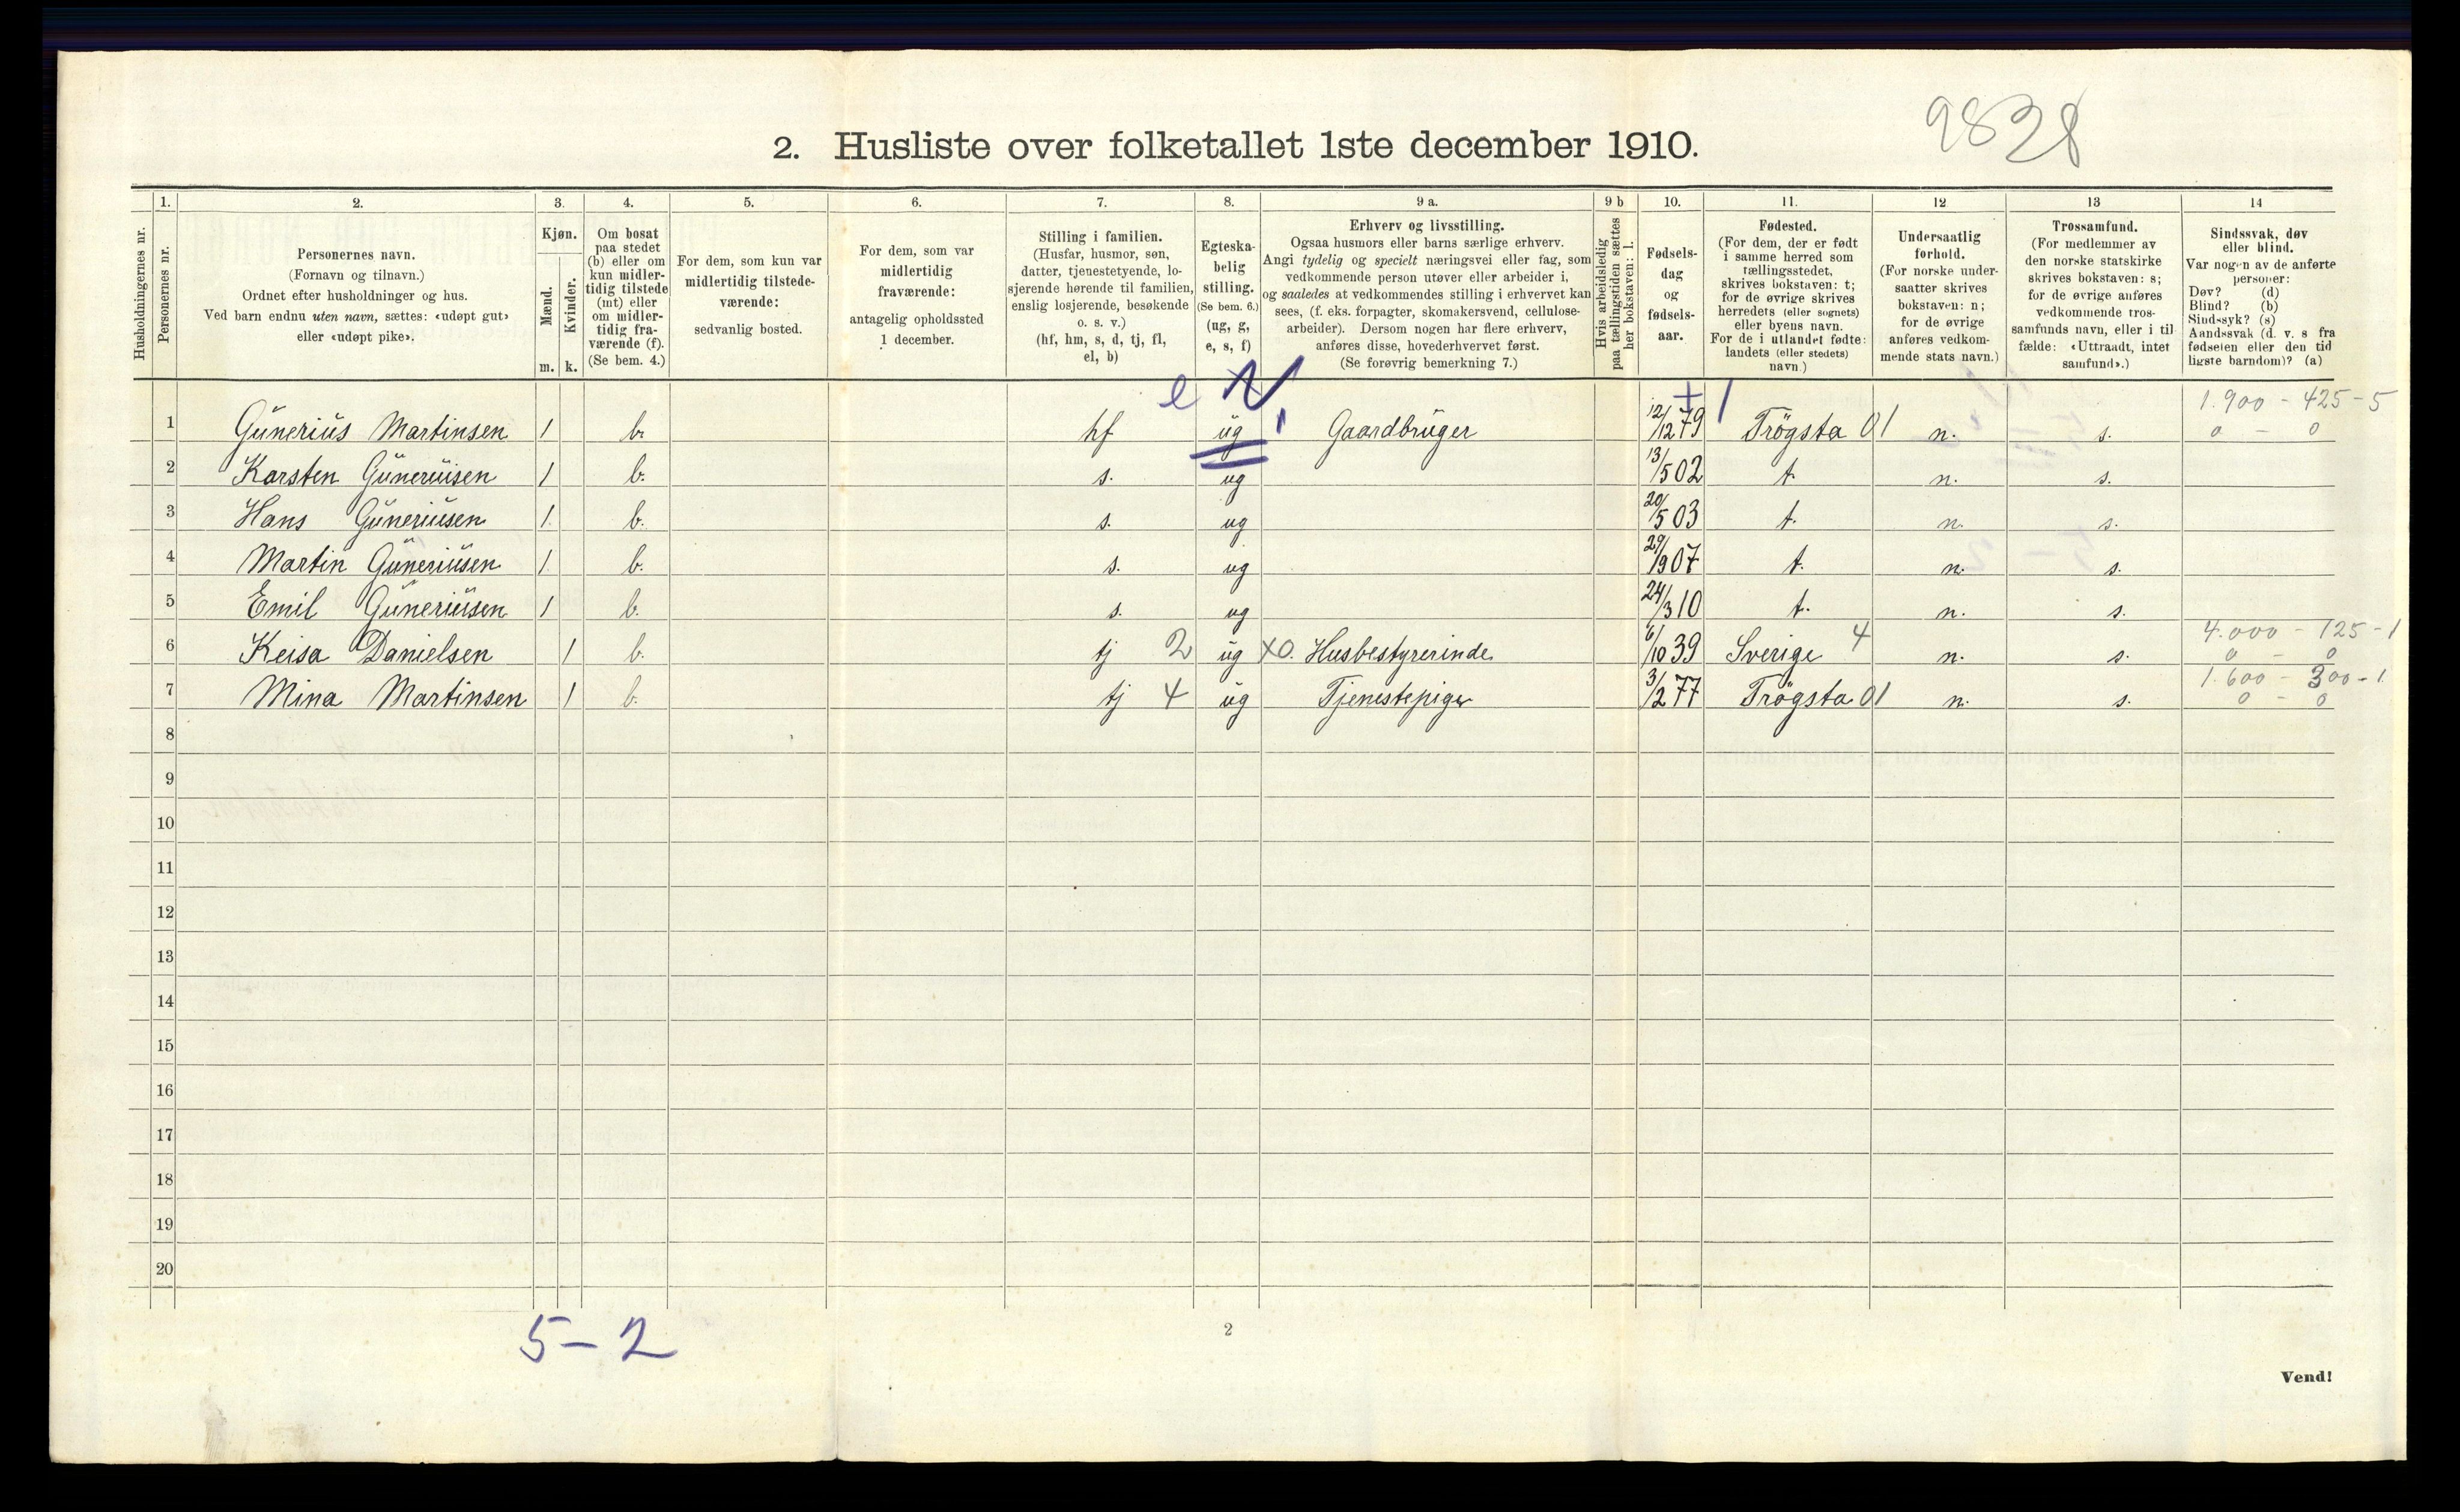 9828
2. Husliste over folketallet 1ste december 1910.
Husholdningernes nr.
1.
Personernes nr.
2.
Personernes navn.
(Fornavn og tilnavn.)
Ordnet efter husholdninger og hus.
Ved barn endnu uten navn, sættes: «udøpt gut»
eller «udøpt pike».
3.
Kjøn.
Mænd.
Kvinder.
m. k.
4.
Om bosat
paa stedet
(b) eller om
kun midler-
tidig tilstede
(mt) eller
om midler-
tidig fra-
værende (f).
(Se bem. 4.)
5.
For dem, som kun var
midlertidig tilstede-
værende:
sedvanlig bosted.
6.
For dem, som var
midlertidig
fraværende:
antagelig opholdssted
1 december.
7.
Stilling i familien.
(Husfar, husmor, søn,
datter, tjenestetyende, lo-
sjerende hørende til familien,
enslig losjerende, besøkende
o. s. v.)
(hf, hm, s, d, tj, fl,
el, b)
8.
Egteska-
belig
stilling.
(Se bem. 6.)
(ug, g,
e, s, f)
9 a.
Erhverv og livsstilling.
Ogsaa husmors eller barns særlige erhverv.
Angi tydelig og specielt næringsvei eller fag, som
vedkommende person utøver eller arbeider i,
og saaledes at vedkommendes stilling i erhvervet kan
sees, (f. eks. forpagter, skomakersvend, cellulose-
arbeider). Dersom nogen har flere erhverv,
anføres disse, hovederhvervet først.
(Se forøvrig bemerkning 7.)
9 b
Hvis arbeidsledig
paa tællingstiden sættes
her bokstaven: l.
10.
Fødsels-
dag
og
fødsels-
aar.
11.
Fødested.
(For dem, der er født
i samme herred som
tællingsstedet,
skrives bokstaven: t;
for de øvrige skrives
herredets (eller sognets)
eller byens navn.
For de i utlandet fødte:
landets (eller stedets)
navn.)
12
Undersaatlig
forhold.
(For norske under-
saatter skrives
bokstaven: n;
for de øvrige
anføres vedkom-
mende stats navn.)
13
Trossamfund.
(For medlemmer av
den norske statskirke
skrives bokstaven: s;
for de øvrige anføres
vedkommende tros-
samfunds navn, eller i til
fælde: «Uttraadt, intet
samfund».)
14
Sindssvak, døv
eller blind.
Var nogen av de anførte
personer:
Døv? (d)
Blind? (b)
Sindssyk? (s)
Aandssvak (d. v. s fra
fødselen eller den tid
ligste barndom)? (a)
e + 1 1.900 - 425 - 5
1 Gunerius Martinsen 1 b. hf ug Gaardbruger 12/12 79 Trögsta 01 n. s. 0 - 0
2 Karsten Guneriusen 1 b. s. ug 13/5 02 t. n. s.
3 Hans Guneriusen 1. b. s. ug 20/5 03 t. n. s.
4 Martin Guneriusen 1. b. s. ug 29/9 07 t. n. s.
5 Emil Guneriusen 1 b. s. ug 24/3 10 t. n. s.
4.000 - 125 - 1
6 Keisa Danielsen 1 b. tj 2 ug XO. Husbestyrerinde 6/10 39 Sverige 4 n. s. 0 - 0
1.600 - 300 - 1
7 Mina Martinsen 1 b. tj 4 ug Tjenestepige 3/2 77 Trögsta 01 n. s. 0 - 0
8
9
10
11
12
13
14
15
16
17
18
19
20
5 - 2
2
Vend!